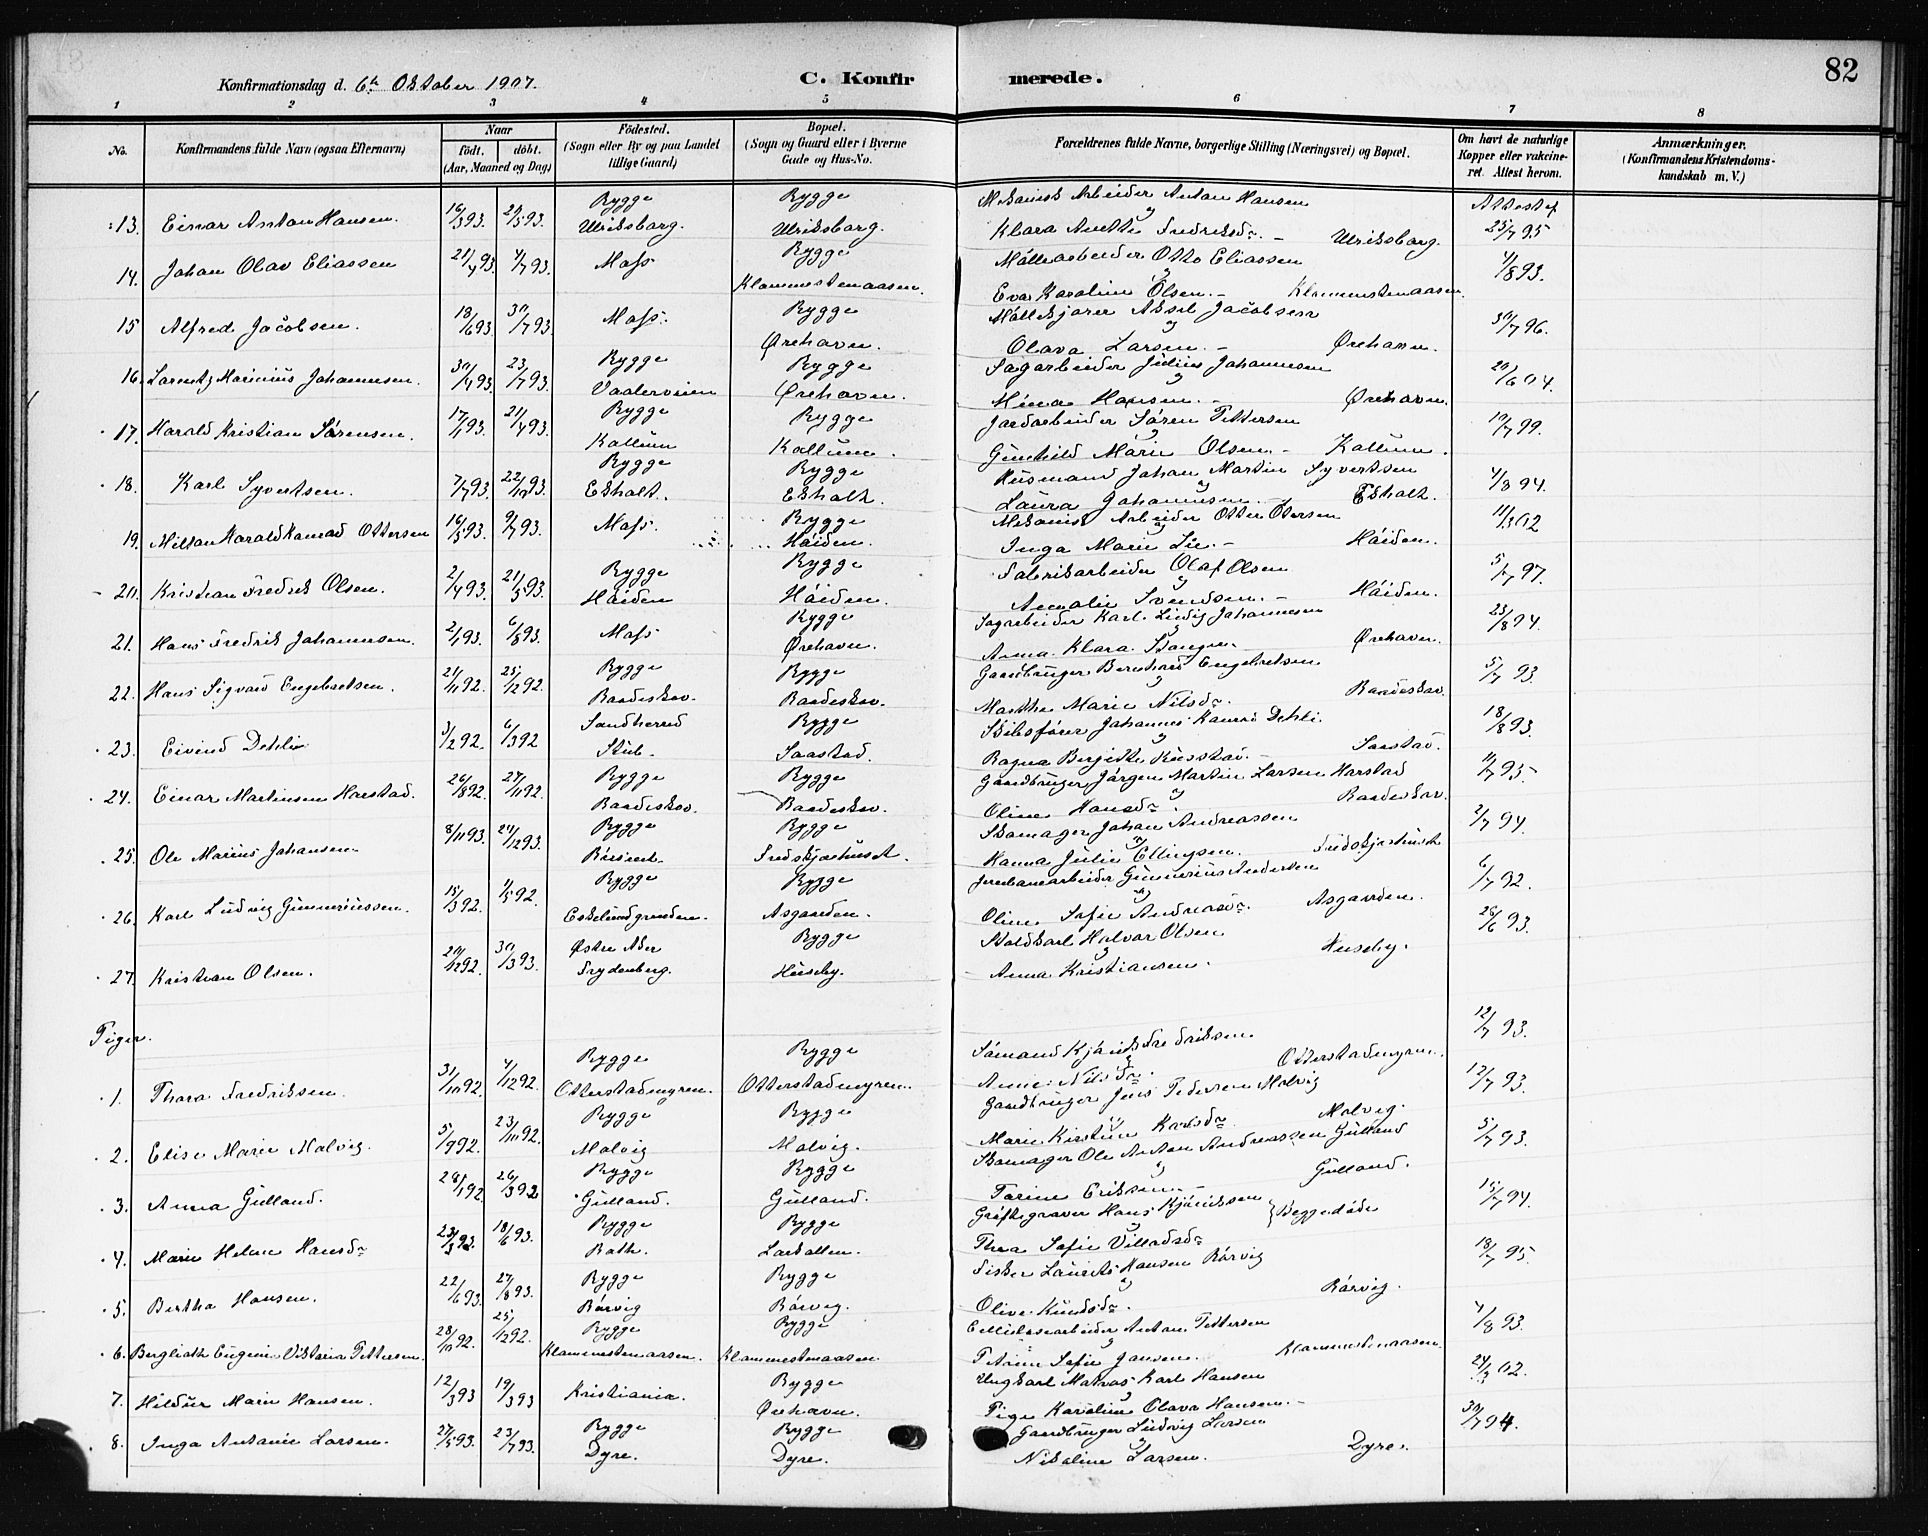 82
Konfirmationsdag d. 6te Oktober 1907.
C. Konfirmerede.
1 2 3 4 5 6 7 8
No. Konfirmandens fulde Navn (ogsaa Efternavn) Naar født, døbt. (Aar, Maaned og Dag) Födested. (Sogn eller By og paa Landet tillige Gaard) Bopæl. (Sogn og Gaard eller i Byerne Gade og Hus-No. Forældrenes fulde Navne, borgerlige Stilling (Næringsvei) og Bopæl. Om havt de naturlige Kopper eller vakcineret. Attest herom. Anmærkninger. (Konfirmandens Kristendomskundskab m. V.)
13. Einar Anton Hansen. 16/3 93. 29/5 93. Rygge Ulriksborg. Rygge Ulriksborg. Mekanisk Arbeider Anton Hansen
Klara Anette Fredriksdr. - Ulriksborg. Attest af 25/7 95
14. Johan Olav Eliassen 21/4 93. 4/7 93. Moss Rygge Klommestenaasen. Møllearbeider Otto Eliassen
Eva Karoline Olsen. - Klommestenaasen. 4/8 93.
15 Alfred Jacobsen. 18/6 93. 30/7 93. Moss. Rygge Ørehavn. Møllekjører Aksel Jacobsen
Olava Larsen - Ørehavn. 30/7 96.
16. Lorentz Marinius Johannesen. 30/4 93. 23/7 93. Rygge Vaaleroeien Rygge Ørehavn. Sagarbeider Julius Johannesen
Mina Hansen. - Ørehavn. 20/6 04.
17. Harald Kristian Sørensen. 17/1 93. 21/4 93. Rygge Kallum Rygge Kallum. Jordarbeider Søren Pettersen
Gunhild Marie Olsen. - Kallum. 19/7 99.
18. Karl Syvertsen. 7/7 93. 22/10 93. Rygge Eskolt. Rygge Eskolt. Husmand Johan Martin Syvertsen
Laura Johannesen - Eskolt. 4/8 94.
19. Milton Harald Konrad Ottersen 16/3 93. 9/7 93. Moss. Rygge Høiden. Mekanisk Arbeider Otter Otersen
Inga Marie Lie. - Høiden. 11/3 02
20. Kristian Fredrik Olsen. 2/4 93. 21/5 93. Rygge Høiden Rygge Høiden. Fabrikarbeider Olaf Olsen
Amalie Svendsen. - Høiden. 5/7 97.
21. Hans Fredrik Johannesen. 2/1 93. 6/8 93. Moss Rygge Ørehavn. Sagarbeider Karl Ludvig Johannesen
Anna Klara Stangen. Ørehavn. 23/8 94.
22. Hans Sigvard Engebretsen. 21/11 92. 25/12 92. Rygge Baadeskov. Rygge Baadeskov. Gaardbruger Bernhard Engebretsen
Marthe Marie Nilsdr. Baadeskov. 5/7 93.
23. Eivind Dehli 3/2 92. 6/3 92 Sandherred Stub. Rygge Saastad. Skibsfører Johannes Konrad Dehli.
Ragna Bergitte Russtad. Saastad. 18/8 93.
24. Einar Martinsen Harstad. 26/8 92. 27/11 92. Rygge Baadeskov. Rygge Baadeskov. Gaardbruger Jørgen Martin Larsen Harstad
Oline Hansdr. Baadeskov. 4/7 95.
25. Ole Marius Johansen. 8/11 93. 24/12 93. Rygge Rygge Skomager Johan Andreassen
Hanna Julie Ellingsen. 2/7 94.
26. Karl Ludvig Gunneriussen. 15/3 92. 1/5 92. Rygge Eskelundgrinden. Rygge Asgaarden. Jernbanearbeider Gunnerius Andersen
Oline Sofie Andreasdr. Asgaarden. 6/7 92.
27 Kristian Olsen. 20/12 92. 30/3 93. Østre Aker Frydenberg. Rygge Huseby. Staldkarl Halvor Olsen
Anna Kristiansen. Huseby. 26/6 93.
Piger.
1. Thora Fredriksen. 31/10 92. 4/12 92. Rygge Otterstadmyren. Rygge Otterstadmyren. Sømand Kjønik Fredriksen
Anne Nilsdr. Otterstadmyren. 12/7 93.
2. Elise Marie Molvig. 5/9 92. 23/11 92. Rygge Molvig Rygge Molvig. Gaardbruger Jens Pedersen Molvig
Marie Kirstine Karlsdr Molvig. 12/7 93.
3. Anna Gulland. 28/1 92. 26/3 92 Rygge Gulland. Rygge Gulland. Skomager Ole Anton Andreassen Gulland
Torine Eriksen. - Gulland. 5/7 93.
4. Marie Helene Hansdr 23/3 93. 18/6 93. Rygge Bath. Rygge Larkollen. Grøftegraver Hans Kjøniksen
Thea Sofie Villadsdr } Begge døde 15/7 94.
5. Bertha Hansen. 22/6 93. 27/8 93. Rygge Rørvig Rygge Rørvig. Fisker Laurits Hansen Rørvig
Olive Knudsdr. Rørvig. 18/7 95.
6. Bergliotk Eugenie Viktoria Pettersen. 28/10 92. 25/12 92. Rygge Klommestenaasen. Rygge Klommestenaasen. Cellulosearbeider Anton Pettersen
Petrine Sofie Jansen. Klommestenaasen 4/8 93.
7. Hildur Marie Hansen. 12/3 93 19/3 93 Kristiania. Rygge Ørehavn. Ungkarl Mathias Karl Hansen
Pige Karoline Olava Hansen. - 24/3 02.
8. Inga Antonie Larsen. 27/5 93. 23/7 93. Rygge Dyre. Rygge Dyre. Gaardbruger Ludvig Larsen
Nikoline Larsen. Dyre. 30/7 94.